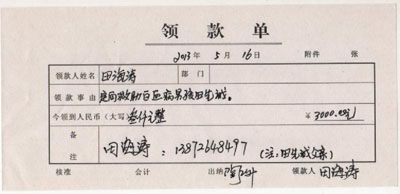 领款单
2013年 5月 16日 附件 张
领款人姓名 田海涛 部门
领款事由 定向救助白血病男孩田先诚。
今领到人民币(大写) 叁仟元整 ¥3000.00元
备注 田海涛:13872648497 (注:田先诚父亲)
核准 会计 出纳 领款人 田海涛